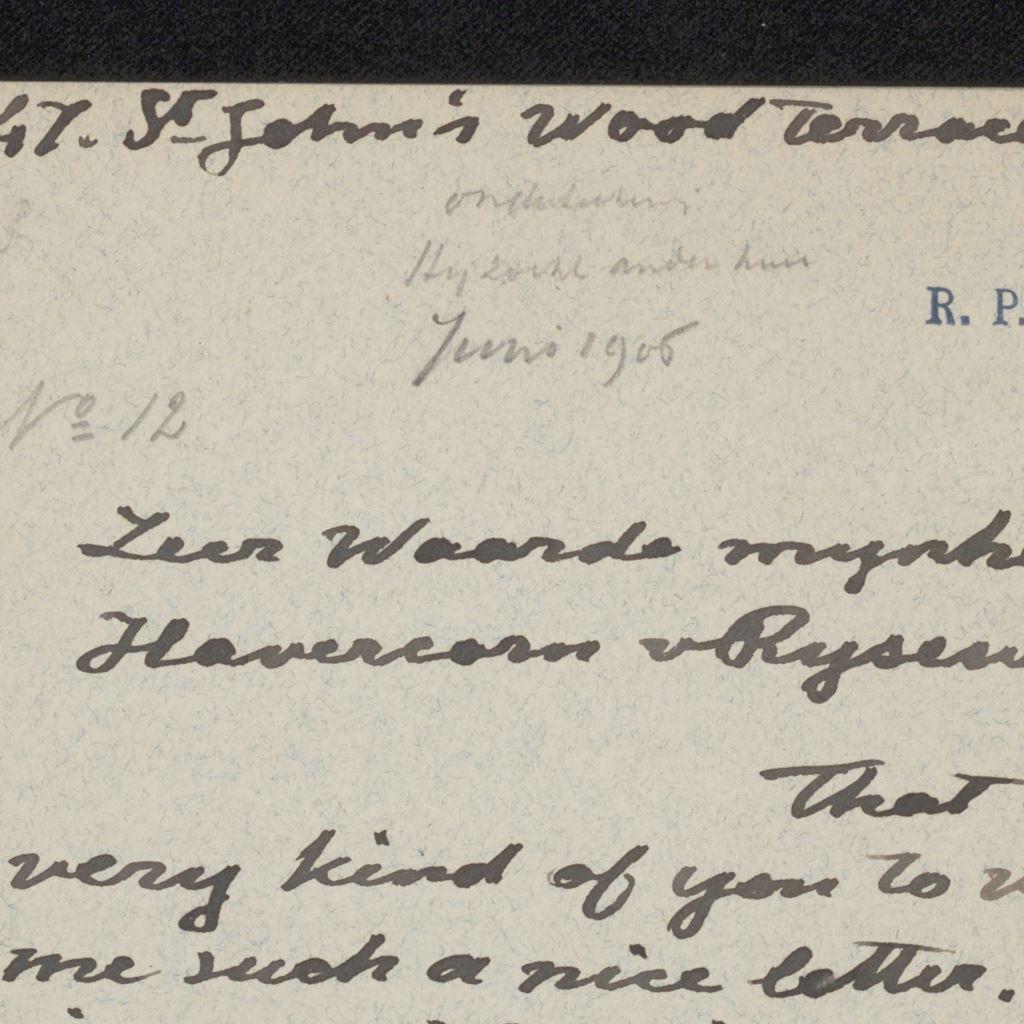 47. St John's Wood Terrace
Hij zocht ander huis
R. P.
Juni 1906
No 12
Zeer Waarde mynhe
Havercorn v Rysew
That
very kind of you to
me such a nice letter.